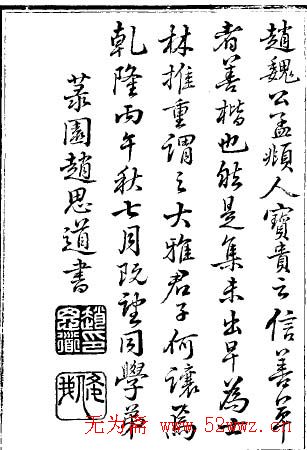 趙魏公孟頫人寶貴云信善草
者善楷也能是集未出早為士
林推重謂之大雅君子何讓焉
乾隆丙午秋七月既望同學弟
菉園趙思道書
趙思道印
无为斋 www.52wwz.cn